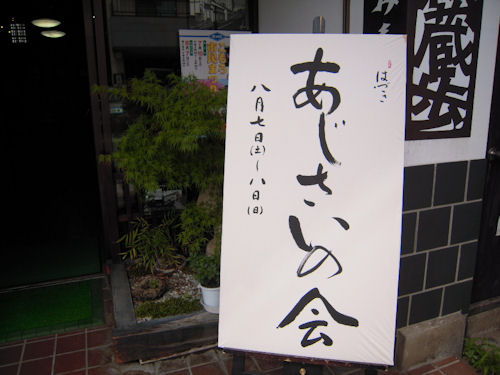 はづき
あじさいの会
八月七日(土)〜八日(日)